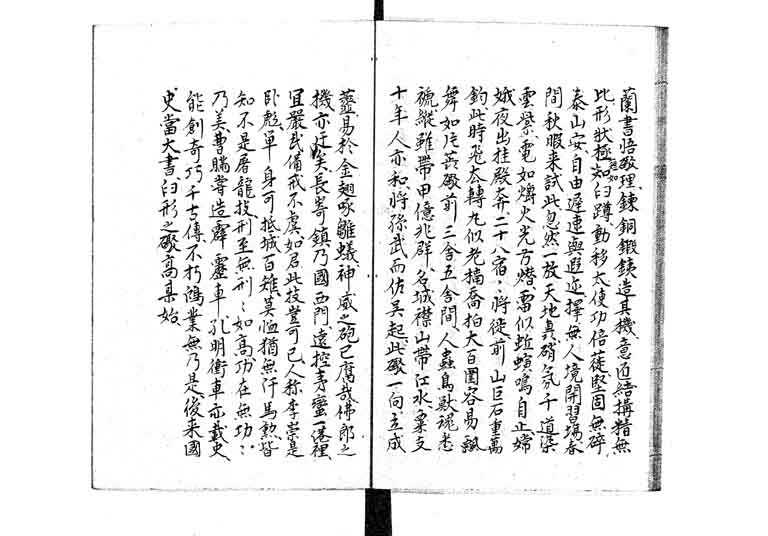 蘭書悟礮理鍊銅鍛銕造其機意匠結構精無
比形狀極知臼蹲動移太使功倍蓰堅固無碎
泰山安自由遲速與遐迩擇無人境開習場春
間秋暇来試此忽然一放天地真硝氛千道染
雲紫電如爝火光方熸雷似蚯螾鳴自止姉
娥夜出挂殿本二十八宿〻將徙前山巨石重萬
鈞此時飛太轉丸似老檣喬拍大百圍容易飄
舞如片蓂礮前三舎五舎間人蟲鳥獣魂悉
褫縱雖帶甲億兆群名城襟山帶江水粟支
十年人亦和將孫武而佐吴起此礮一向立成
虀易於金翅啄雛蟻神威之砲已腐哉佛郎之
機亦迂矣長寄鎮乃國西門遠控青蠻一港裡
宜嚴武備戒不虞如君此技豈可已人称李崇是
卧彪單身可抵城百雉莫恤猶無汗馬勲皆
知不是屠龍技刑至無刑〻如高功在無功〻
乃美曹瞞嘗造霹靂車孔明衝車亦載史
能創奇巧千古傳不朽鴻業無乃是後来國
史當大書臼形之礮高某始